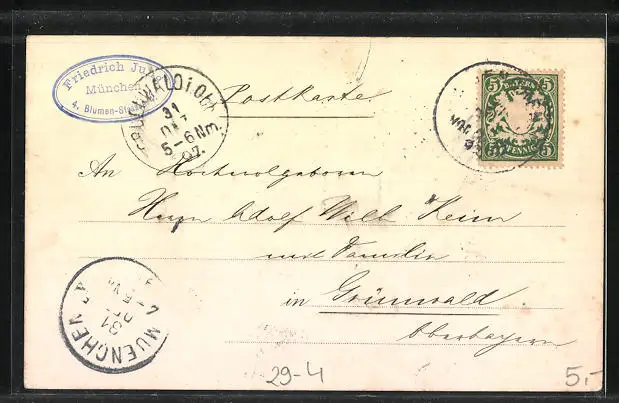 Friedrich Ju
München
4. Blumen-St
WALD i. Ob
31
5-6 Nm.
97.
Postkarte.
BAYERN
5 5
PFENNIG
5 5
An Hochwolgeboren
Herrn Adolf Wilh Heim
und Familie
in Grünwald.
Oberbayern
MUENCHEN
31
29-4
5,-